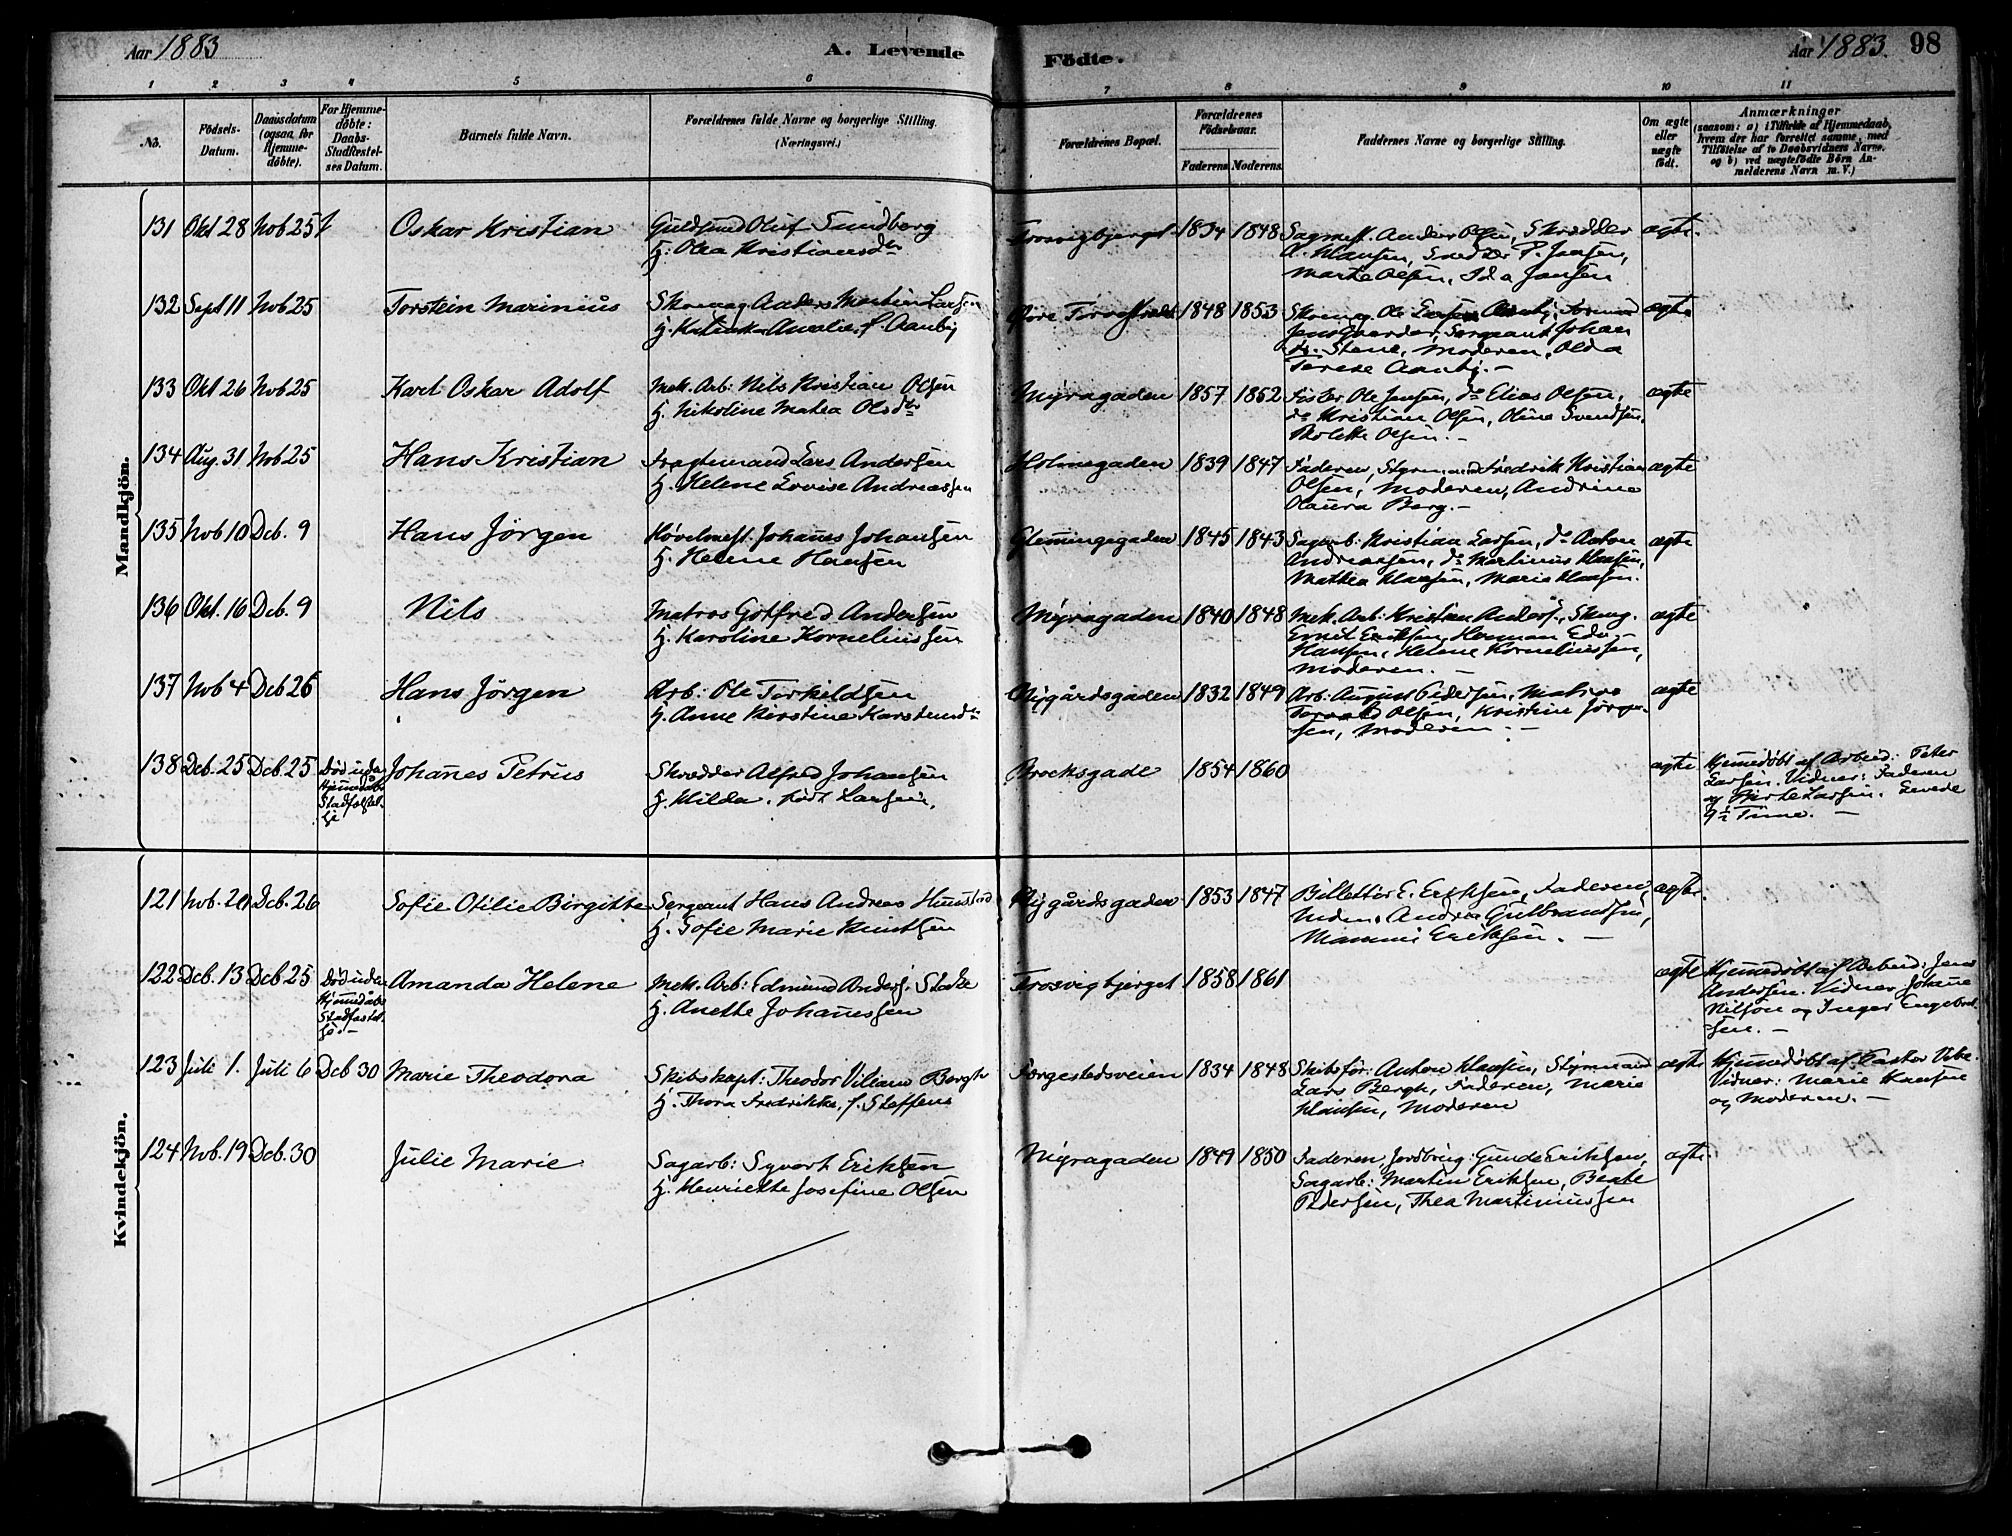 Aar 1883
A. Levende
Födte.
Aar 1883. 98
1 2 3 4 5 6 7 8 9 10 11
No.
Födsels-
Datum.
Daabsdatum
(ogsaa for
Hjemme-
döbte).
For Hjemme-
döbte:
Daabs-
Stadfæstel-
ses Datum.
Barnets fulde Navn.
Forældrenes fulde Navne og borgerlige Stilling.
(Næringsvei.)
Forældrenes Bopæl.
Forældrenes
Födselsaar.
Faderens Moderens.
Faddernes Navne og borgerlige Stilling.
Om ægte
eller
uægte
født.
Anmærkninger
(saasom: a) i Tilfælde af Hjemmedaab,
hvem der har forrettet samme, med
Tilföielse af to Daabsvidners Navne.
og b) ved uægtefödte Börn An-
melderens Navn m. V.)
Mandkjön.
131 Okt 28 Nob 25 Oskar Kristian
Guldsmed Oluf Sundberg
H. Olea Kristiansdtr
Trosvigbjerget 1834 1848
Sagmest. Anders Olsen, Skrædder
A. Klausen, Snedker P. Jansen,
Marte Olsen, Ida Jansen
ægte.
132 Sept 11 Nob 25 Torstein Marinius
Skomag Anders Martin Larsen
H. Katinka Amalie f. Aanby
1848 1853
Skomag. Ole
Jens Gaarder, Sergeant Johan
Kr. Stene, Moderen, Olea
Terese Aanby.
ægte
133 Okt 26 Nob 25 Karl Oskar Adolf
Mek. Arb: Nils Kristian Olsen
H. Nikoline Matea Olsdtr
Myragaden 1857 1852
Fisker Ole Jensen, do Elias Olsen,
do Kristian Olsen, Oline Svendsen,
Olsen.
ægte
134 Aug. 31 Nob 25 Hans Kristian
Fragtemand Lars Andersen
H. Helene Lovise Andreassen
Holmegaden 1839 1847
Faderen, Fredrik Kristian
Olsen, Moderen, Andrine
Laura Berg.
ægte
135 Nob 10 Dcb. 9 Hans Jörgen
Høvelmest. Johanes Johansen
H. Helene Hansen
Glemingegaden 1845 1843
Sagarb. Kristian Larsen, do Anton
Andreassen, do Martinius Klausen,
Mathea Klausen, Maria Klausen.
ægte
136 Okt. 16 Dcb. 9 Nils
Matros Gotfred Andersen
H. Karoline Korneliussen
Myragaden 1840 1848
Mek. Arb: Kristian Anders., Skomag.
Ernst Eriksen, Herman Edv.
Hansen, Helene Korneliussen,
Moderen.
ægte
137 Nob 4 Dcb 26 Hans Jörgen
Arb: Ole Torkildsen
H. Anne Kirstine
Nygårdsgaden 1832 1849
Arb: August Pedersen, Matros
Olsen, Kristine Jörgen-
sen, Moderen.
ægte
138 Dcb. 25 Dcb. 25 Död uden
Hjemmedåbs
Stadfæstel-
se
Johanes Petrus
Skrædder Alfred Johansen
H. Hilda, født Larsen.
Brocksgade 1854 1860
ægte
Hjemedøbt af Arbeid: Peter
Larsen. Vidner: Faderen
og Birte Larsen. Levede
9½ Time.
Kvindekjön.
121 Nob. 20 Dcb. 26 Sofie Otilie Birgitte
Sergeant Hans Andreas
H. Sofie Marie Knutsen
Nygårdsgaden 1853 1847
Billettör E. Eriksen, Faderen,
Andrea Gulbrandsen,
Eriksen.
ægte.
122 Dcb. 13 Dcb 25 Död uden
Hjemmedåbs
Stadfæstel-
se.
Amanda Helene
Mek. Arb: Edmund Anders.
H. Anette Johanessen
Trosvigbjerget 1858 1861
ægte
Hjemmedøbt af Arbeid: Jens
Andersen. Vidner Johane
Nilson og Inger Engebret-
sen.
123 Juli 1. Juli 6 Dcb 30 Marie Theodora
Skibskapt: Theodor Viliam Bergh
H. Thora Fredrikke, f. Steffens
Færgestedsveien 1834 1848
Skibsför: Anton Klausen, Styrmand
Lars Bergh, Faderen, Marie
Klausen, Moderen
ægte
Hjemmedøbt af Pastor Vibe.
Vidner: Marie Hansen
og Moderen.
124 Nob. 19 Dcb. 30 Julie Marie
Sagarb: Syvert Eriksen
H. Henriette Josefine Olsen
Myragaden 1849 1850
Faderen, Jordbrug: Gunde Eriksen,
Sagarb: Martin Eriksen, Beate
Pedersen, Thea Martiniussen
ægte